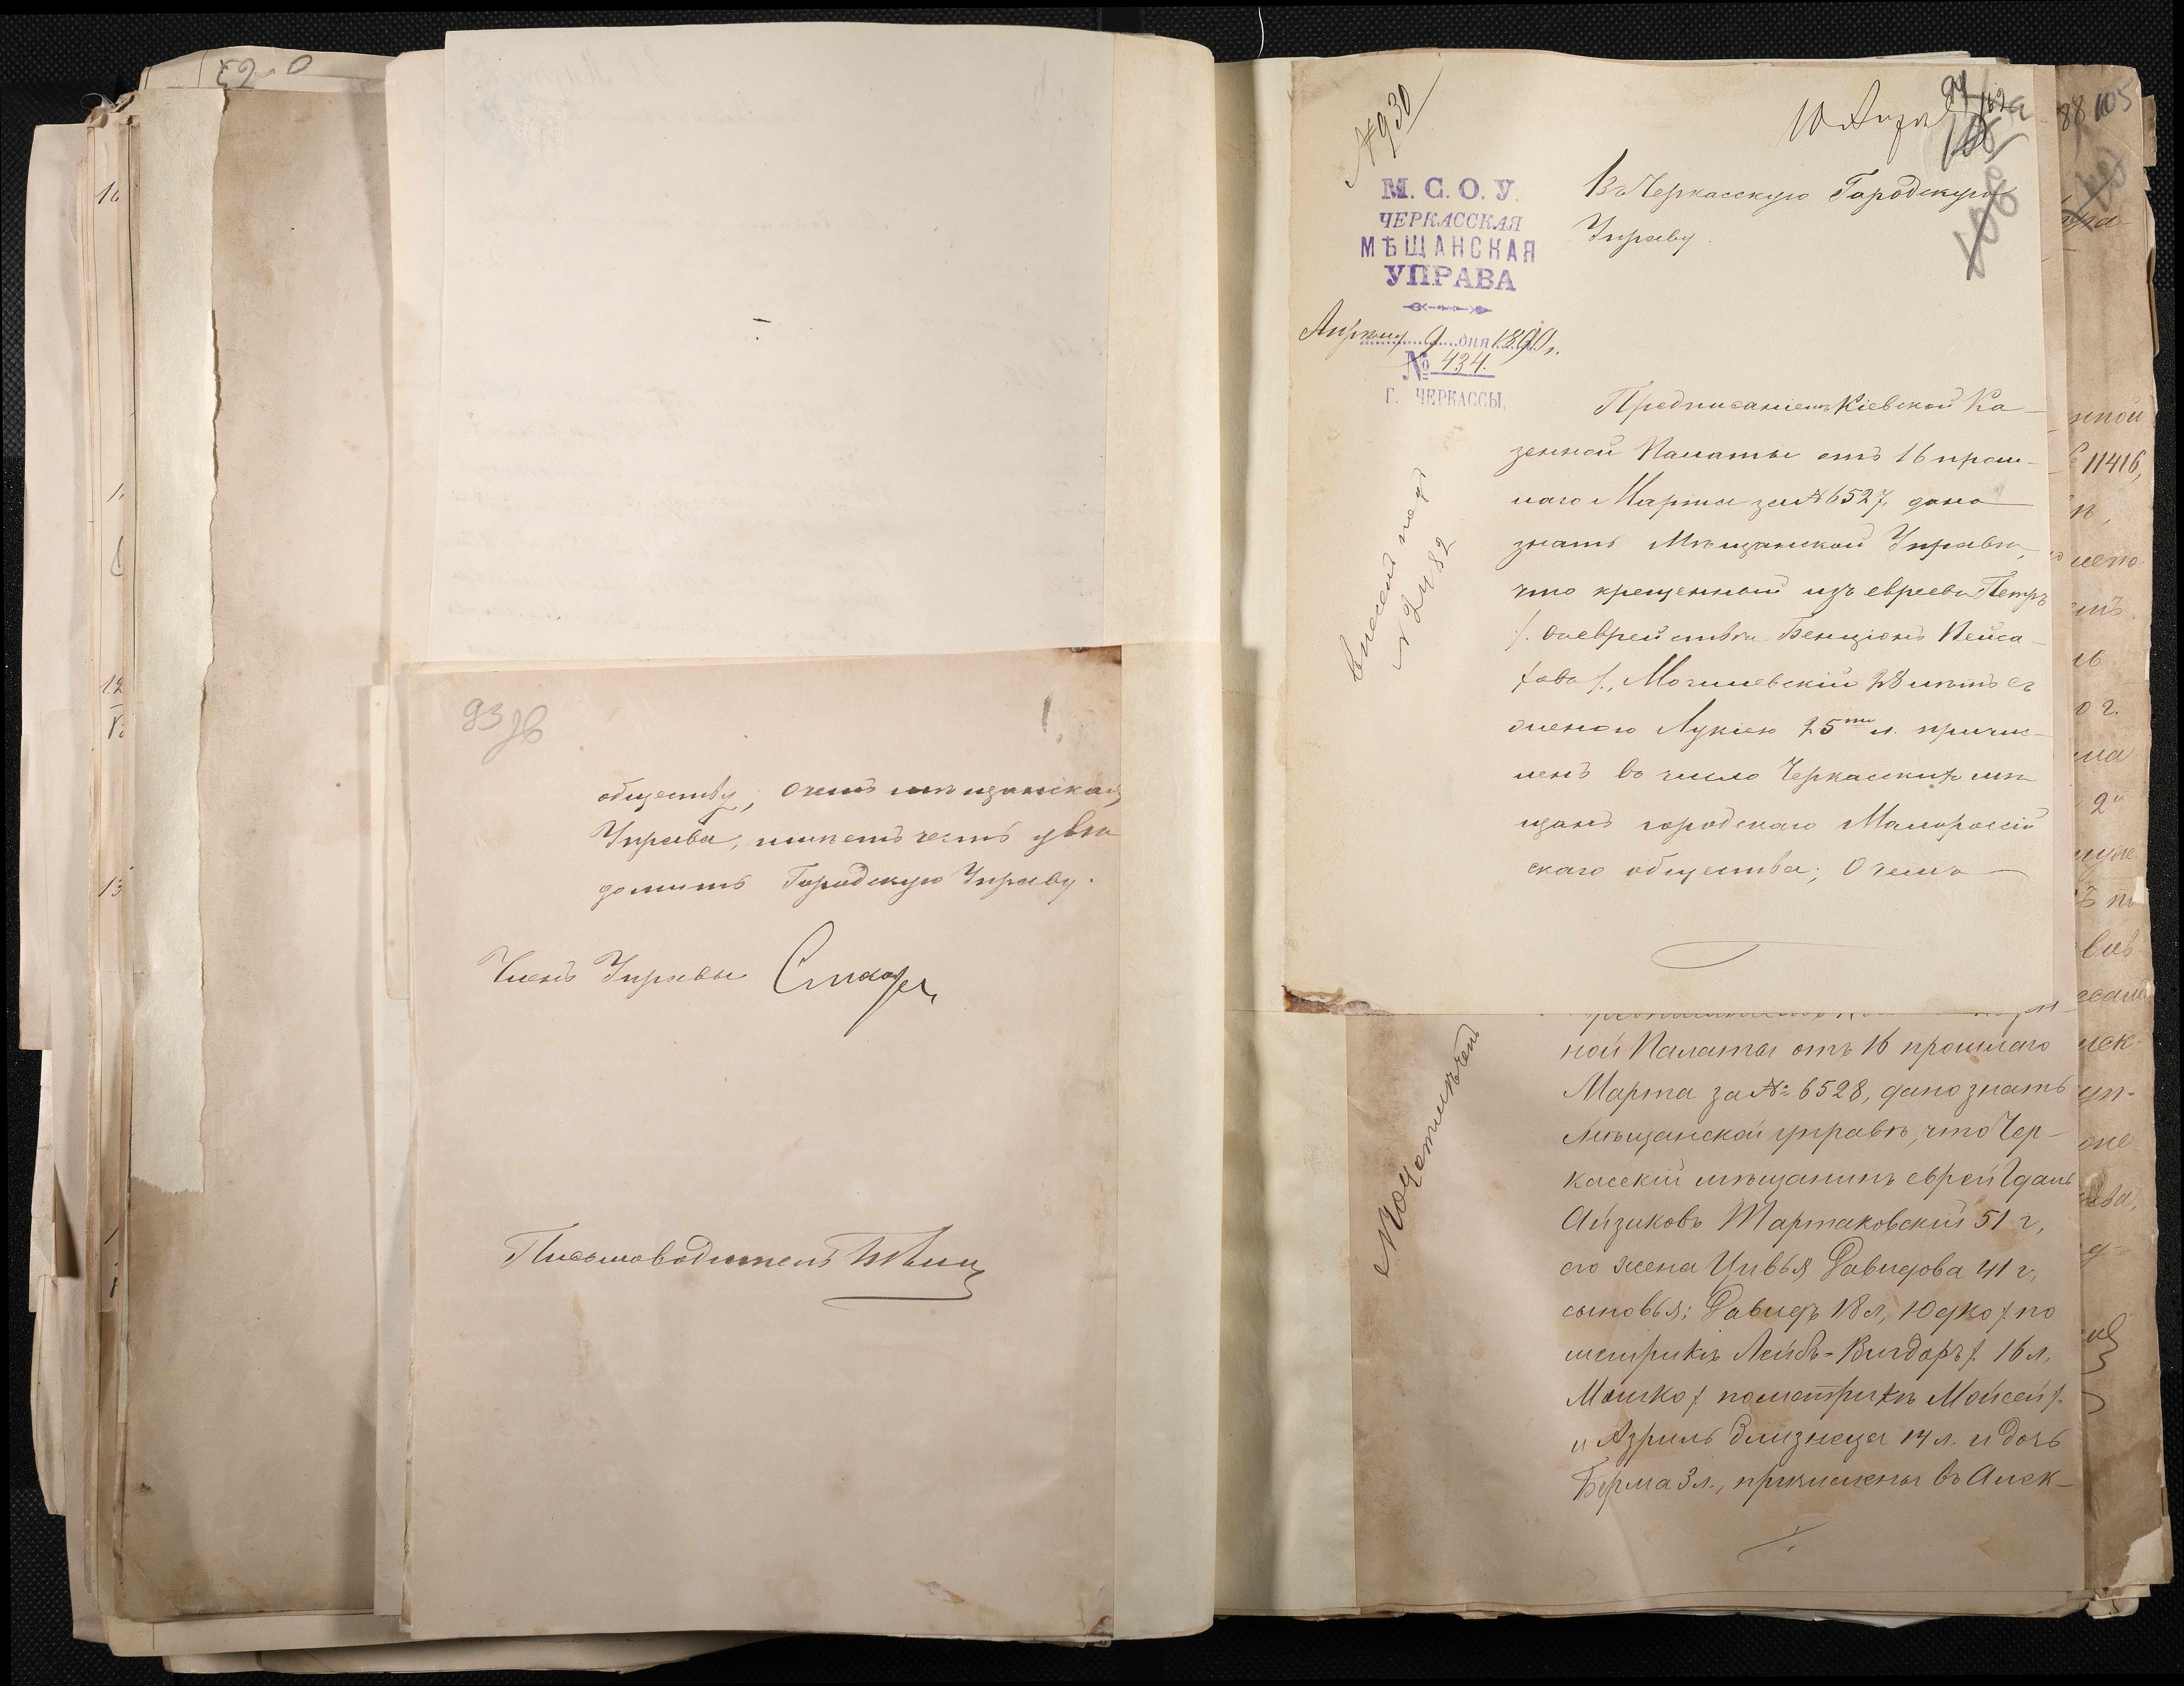 93 об
обществу, о чемъ мѣщанская
Управа, имѣетъ честь увѣ
домить Городскую Управу.
Членъ Управы
Письмоводитель
№ 930
10 Апр
В Черкасскую Городскую
Управу.
М. С. О. У.
ЧЕРКАССКАЯ
МѢЩАНСКАЯ
УПРАВА
Апрѣля 9 дня 1890 г.
№ 434.
Г. ЧЕРКАССЫ.
Внесенъ подъ
№ 2482
Предписаніемъ Кіевской Ка-
зенной Палаты отъ 16 прош-
лаго Марта за № 6527, дано
знать Мѣщанской Управѣ,
что крещенный изъ евреевъ Петръ
/. въ еврействѣ Бенціонъ Пейса-
ховъ /., Могилевскій 28 лѣтъ съ
женою Лукіею 25ти л. причис-
ленъ въ число Черкасскихъ мѣ
щанъ городскаго Малороссій
скаго общества; О чемъ
ной Палаты отъ 16 прошлаго
Марта за № 6528, дано знать
Мѣщанской управѣ, что Чер-
касскій мѣщанинъ еврей Гдаль
Айзиковъ Тартаковскій 51 г,
его жена Цивья Давидова 41 г,
сыновья: Давидъ 18 л, Юдко /. по
метрикѣ Лейбъ-Вигдоръ /. 16 л,
Мошко /. по метрикѣ Мойсей /.
и Азриль близнеца 14 л. и дочь
Берма 3 л., причислены въ Алек-
88 105
нной
11416,